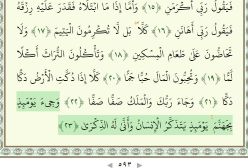 فَيَقُولُ رَبِّي أَكْرَمَنِ ﴿١٥﴾ وَأَمَّا إِذَا مَا ابْتَلَاهُ فَقَدَرَ عَلَيْهِ رِزْقَهُ
فَيَقُولُ رَبِّي أَهَانَنِ ﴿١٦﴾ كَلَّا بَل لَّا تُكْرِمُونَ الْيَتِيمَ ﴿١٧﴾ وَلَا
تَحَاضُّونَ عَلَى طَعَامِ الْمِسْكِينِ ﴿١٨﴾ وَتَأْكُلُونَ التُّرَاثَ أَكْلًا
لَّمًّا ﴿١٩﴾ وَتُحِبُّونَ الْمَالَ حُبًّا جَمًّا ﴿٢٠﴾ كَلَّا إِذَا دُكَّتِ الْأَرْضُ دَكًّا
دَكًّا ﴿٢١﴾ وَجَاءَ رَبُّكَ وَالْمَلَكُ صَفًّا صَفًّا ﴿٢٢﴾ وَجِيءَ يَوْمَئِذٍ
بِجَهَنَّمَ يَوْمَئِذٍ يَتَذَكَّرُ الْإِنسَانُ وَأَنَّى لَهُ الذِّكْرَى ﴿٢٣﴾
٥٩٣